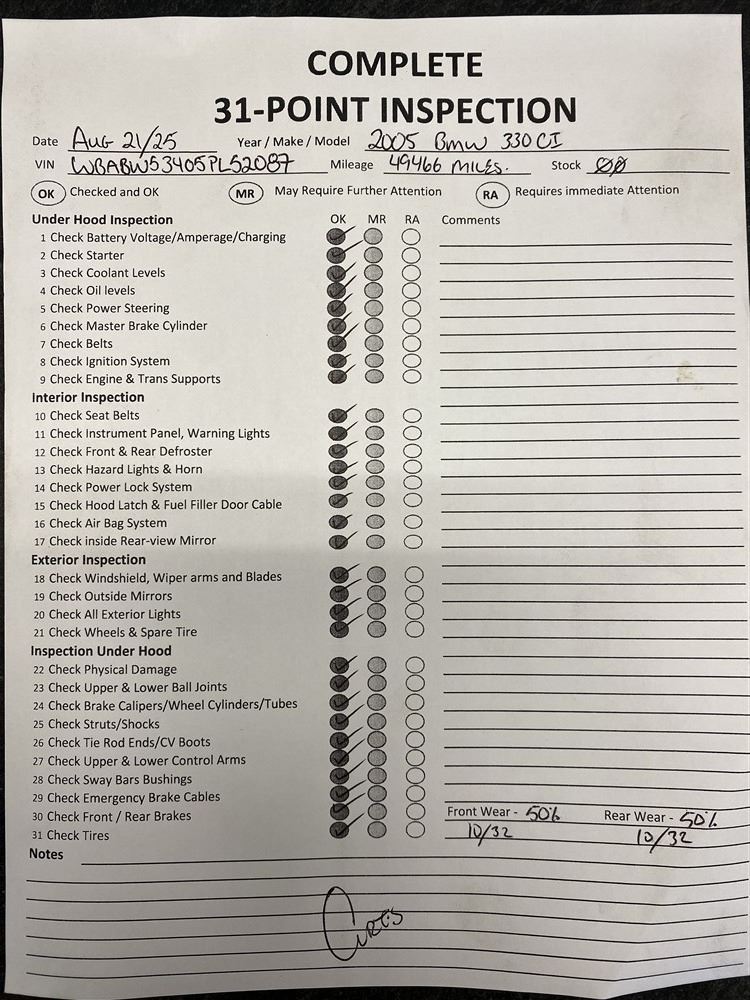 COMPLETE
31-POINT INSPECTION
Date Aug 21/25 Year / Make / Model 2005 Bmw 330 CI
VIN WBABW53405PL52087 Mileage 49466 MILES. Stock ØØ
OK Checked and OK MR May Require Further Attention RA Requires immediate Attention
Under Hood Inspection OK MR RA Comments
1 Check Battery Voltage/Amperage/Charging
2 Check Starter
3 Check Coolant Levels
4 Check Oil levels
5 Check Power Steering
6 Check Master Brake Cylinder
7 Check Belts
8 Check Ignition System
9 Check Engine & Trans Supports
Interior Inspection
10 Check Seat Belts
11 Check Instrument Panel, Warning Lights
12 Check Front & Rear Defroster
13 Check Hazard Lights & Horn
14 Check Power Lock System
15 Check Hood Latch & Fuel Filler Door Cable
16 Check Air Bag System
17 Check inside Rear-view Mirror
Exterior Inspection
18 Check Windshield, Wiper arms and Blades
19 Check Outside Mirrors
20 Check All Exterior Lights
21 Check Wheels & Spare Tire
Inspection Under Hood
22 Check Physical Damage
23 Check Upper & Lower Ball Joints
24 Check Brake Calipers/Wheel Cylinders/Tubes
25 Check Struts/Shocks
26 Check Tie Rod Ends/CV Boots
27 Check Upper & Lower Control Arms
28 Check Sway Bars Bushings
29 Check Emergency Brake Cables
30 Check Front / Rear Brakes Front Wear - 50% Rear Wear - 50%
31 Check Tires 10/32 10/32
Notes
Curtis